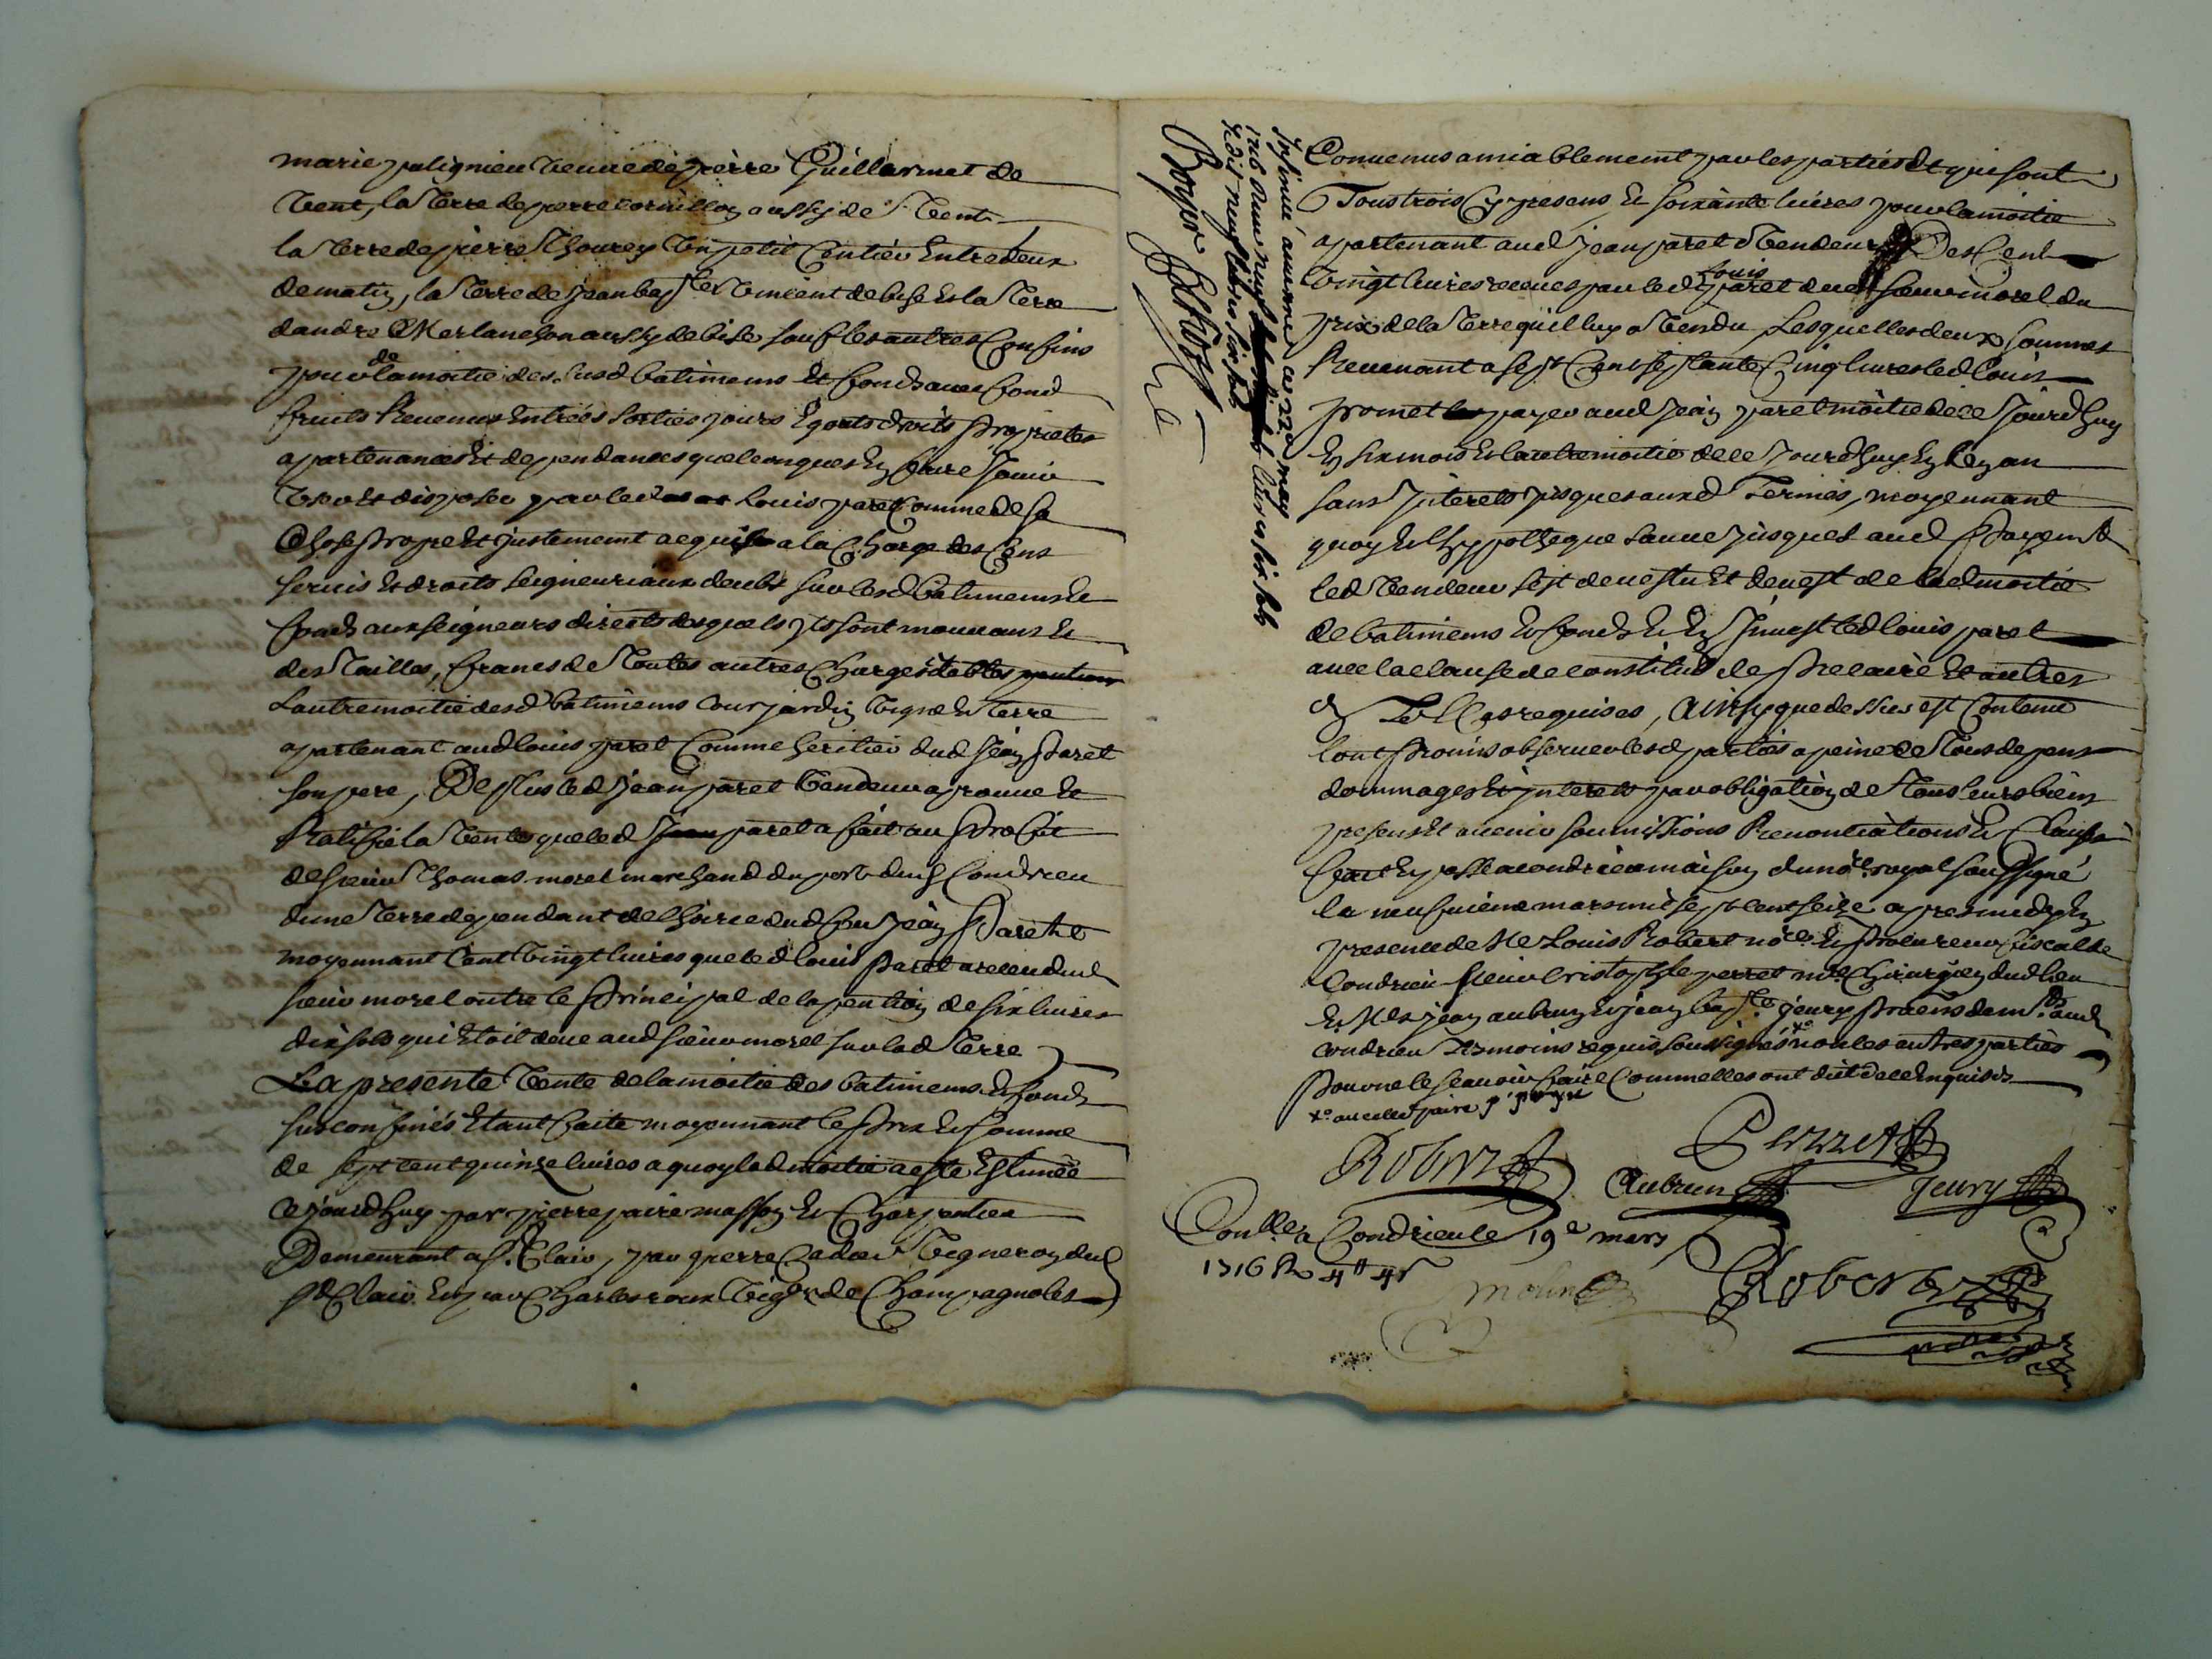 marie palignieu veuve de pierre Guillarmet de
vent, la terre de pierre cornillon aussy de vent
la terre de pierre Thourey un petit Centier Entre deux
de matin, la terre de jean bapte vincent de bise Et la terre
dandre Merlanchon aussy de bise sauf les autres Confins
pour de la moitie des susd batimens Et fonds avec fond
fruits Revenus Entrées sorties jours Egouts droits proprietes
apartenances Et dependances quelconques En faire Jouir
User Et disposer par led Louis paret Comme de sa
Chose propre Et justement acquise a la Charge des Cens
servis Et droits seigneuriaux deubs sur lesd batimens Et
fonds aux seigneurs directs desquels ils sont mouvans Et
des tailles, francs de toutes autres Charges debtes pentions
Lautre moitie desd batimens Cour jardin vigne Et terre
apartenant aud louis paret Comme heritier dud Jean paret
son pere, De plus led jean paret vendeur aprouve Et
Ratifie la vente que led paret a fait au profit
de sieur Thomas morel marchand du port dud Condrieu
dune terre dependant de lhoirie dud feu Jean Paret
moyennant Cent vingt livres que led louis paret a receu dud
sieur morel outre le principal de la pention de six livres
dix sols qui Etoit deue aud sieur morel sur lad terre
La presente vente de la moitie des batimens Et fonds
sus confinés Etant faite moyennant le prix Et somme
de sept cent quinze livres a quoy lad moitie a este Estimée
Cejourdhuy par pierre paire masson Et Charpentier
Demeurant a St Clair, par pierre Cadier vigneron dud
St Clair Et par Charles roux vigr de Champagnoles
Convenus amiablement par les parties Et qui sont
Tous trois Cy presens, Et soixante livres pour la moitie
apartenant aud jean paret vendeur Des Cent
vingt livres receues par led Louis paret dud sieur morel du
prix de la terre quil luy a vendu Lesquelles deux sommes
Revenant a sept Cent septante Cinq livres led louis
promet payer aud Jean paret moitie de ce Jourdhuy
En six mois Et lautre moitie de ce Jourdhuy En Un an
sans Interets jusques auxd Termes, moyennant
quoy Et lhypotheque sauve jusques aud Payemt
led vendeur sest devestu Et devest de lad moitie
de batimens Et fonds Et En Invest led louis paret
avec la clause de constitut de precaire Et autres
requises, Ainsy que dessus est Contenu
lont promis observer lesd parties a peine de tous depens
dommages Et interets par obligation de tous leurs biens
presens Et avenir soumissions Renontiations Et Clauses
fait Et passé a condrieu maison du nore royal soussigné
le neufvieme mars mil sept cent seize apres midy En
presence de Me Louis Robert nore Et procureur fiscal de
Condrieu sieur Cristophle perret mre Chirurgien dud lieu
Et Mes jean aubrun Et jean bapte jeury praticiens demts aud
condrieu Tesmoins requis soussignés non les autres parties
pour ne le scavoir faire Comme elles ont dit de ce Enquises
xo avec led paire
Robert
Perret
Aubrun
Jeury
Conlle a Condrieu le 19e mars
1716 R 4tt 4s
Robert
Insinué a ce 22e may
1716